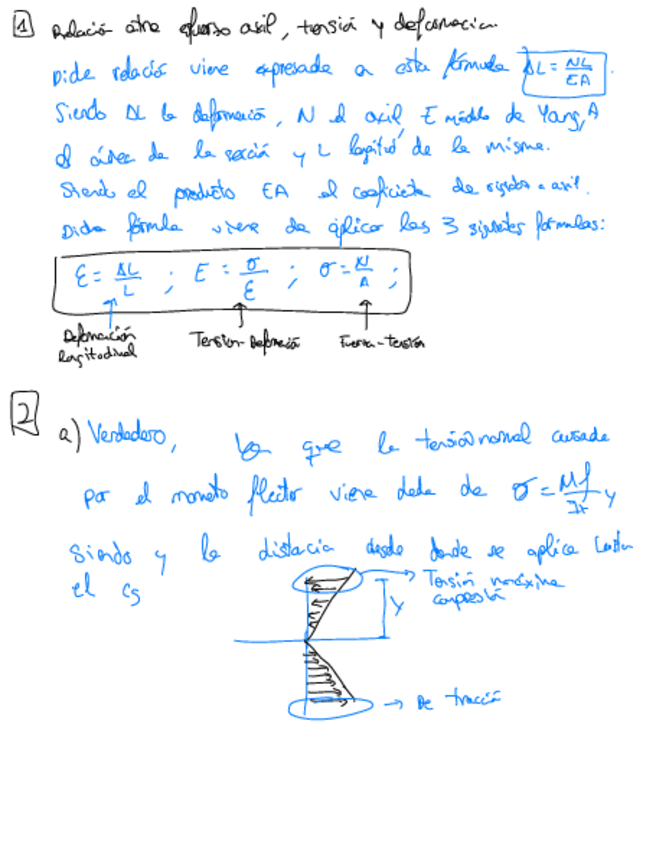 1 Relación entre esfuerzo axil, tensión y deformación.
Dicha relación viene expresada a esta fórmula ΔL = NL/EA.
Siendo ΔL la deformación, N el axil, E módulo de Yang, A
el área de la sección y L longitud de la misma.
Siendo el producto EA el coeficiente de rigidez axil.
Dicha fórmula viene de aplicar las 3 siguientes fórmulas:
ε = ΔL/L ; E = σ/ε ; σ = N/A ;
Deformación Longitudinal
Tensión-Deformación
Fuerza-tensión
2 a) Verdadero, ya que la tensión normal causada
por el momento flector viene dada de σ = Mf/Ix y
Siendo y la distancia desde donde se aplica hasta
el CG
Tensión máxima compresión
y
De tracción